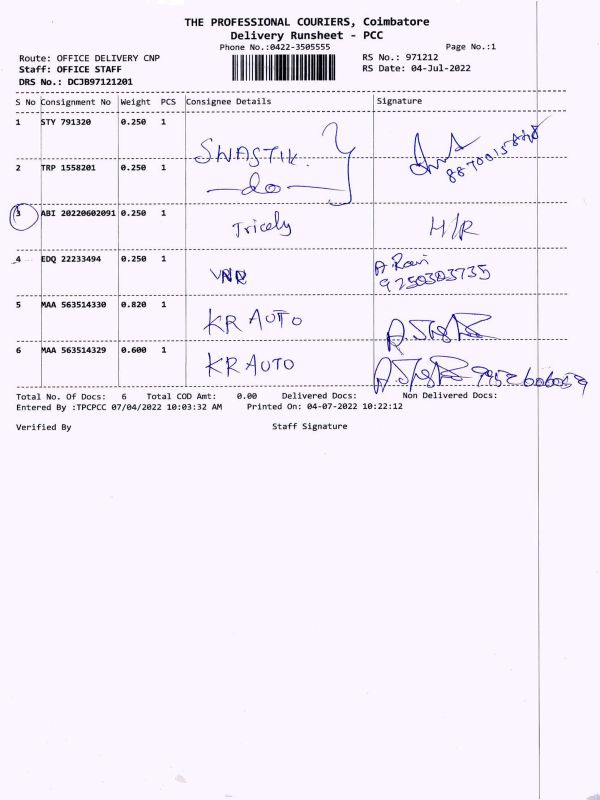 THE PROFESSIONAL COURIERS, Coimbatore
Delivery Runsheet - PCC
Phone No.:0422-3505555 Page No.:1
Route: OFFICE DELIVERY CNP RS No.: 971212
Staff: OFFICE STAFF RS Date: 04-Jul-2022
DRS No.: DCJB97121201
S No Consignment No Weight PCS Consignee Details Signature
1 STY 791320 0.250 1 SWASTIK.
2 TRP 1558201 0.250 1 do
3 ABI 20220602091 0.250 1 Tricely H/R
4 EDQ 22233494 0.250 1 A Ravi
9750303735
5 MAA 563514330 0.820 1 KR AUTO
6 MAA 563514329 0.600 1 KR AUTO
Total No. Of Docs: 6 Total COD Amt: 0.00 Delivered Docs: Non Delivered Docs:
Entered By :TPCPCC 07/04/2022 10:03:32 AM Printed On: 04-07-2022 10:22:12
Verified By Staff Signature